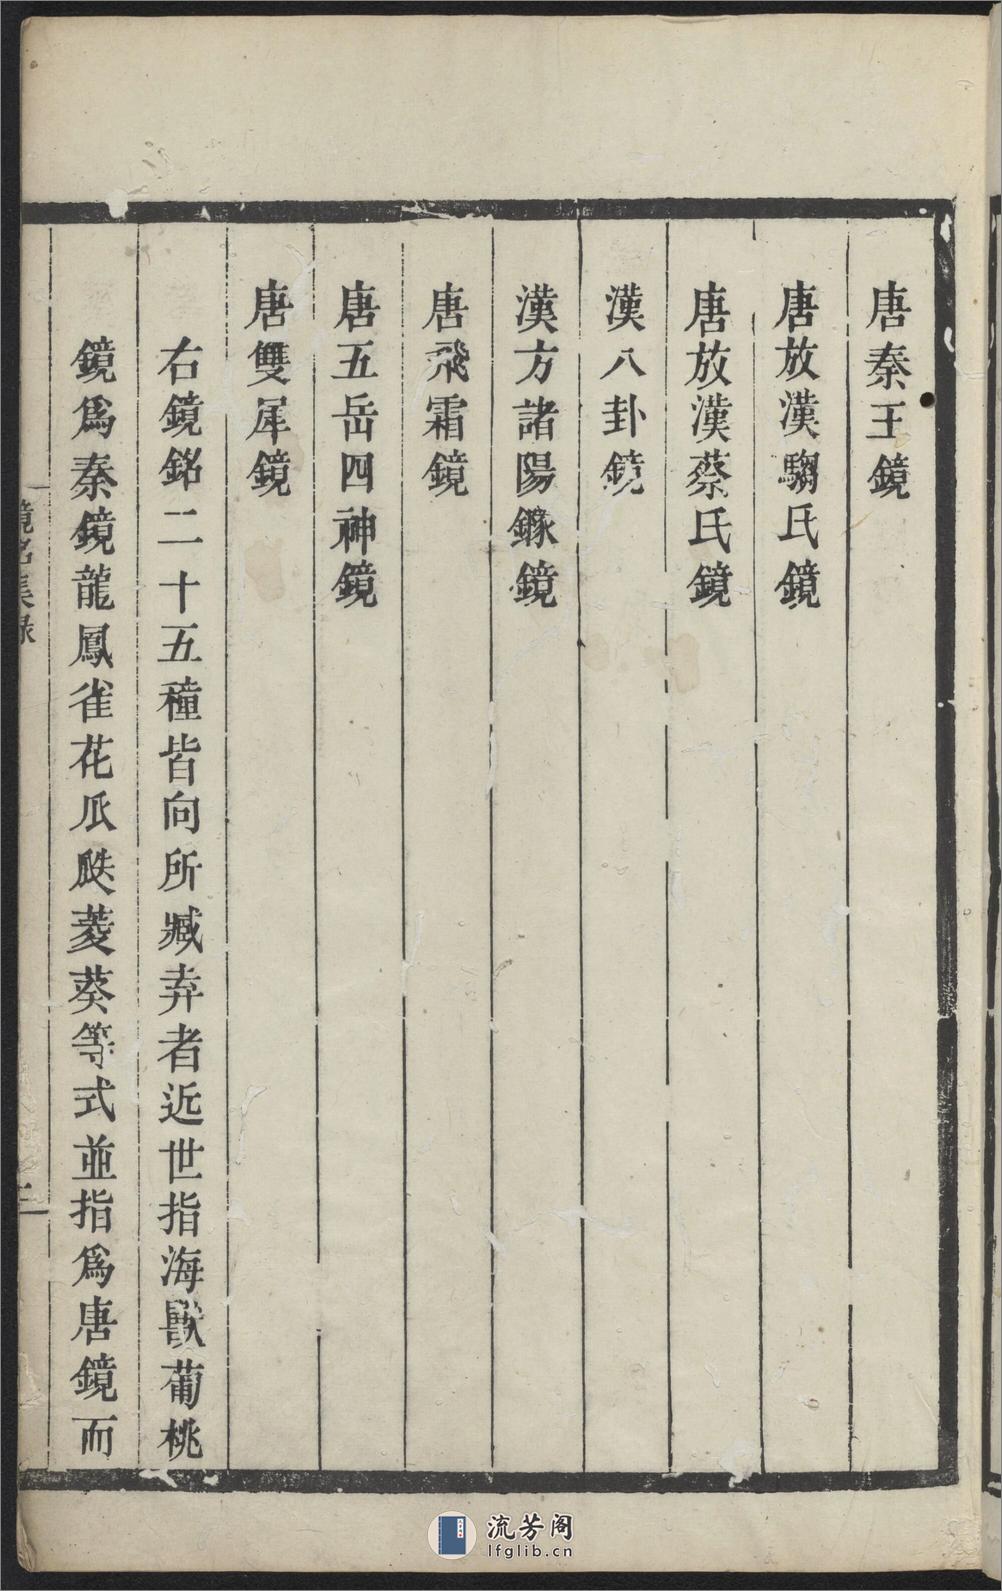 唐秦王鏡
唐放漢騶氏鏡
唐放漢蔡氏鏡
漢八卦鏡
漢方諸陽鐌鏡
唐飛霜鏡
唐五岳四神鏡
唐雙犀鏡
右鏡銘二十五種皆向所臧弆者近世指海獸葡桃
鏡爲秦鏡龍鳳雀花瓜瓞菱葵等式並指爲唐鏡而
鏡銘集錄
流芳阁
lfglib.cn